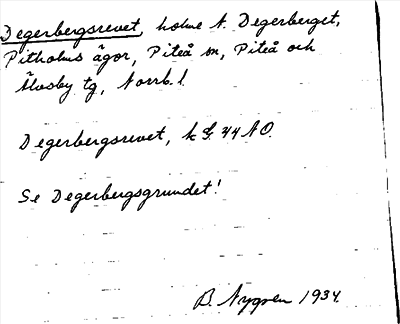 Degerbergsrevet, holme N. Degerberget,
Pitholms ägor, Piteå sn, Piteå och
Älvsby tg, Norrb. l.
Degerbergsrevet, k S. 44 NO.
Se Degerbergsgrundet!
B. Nygren 1934.